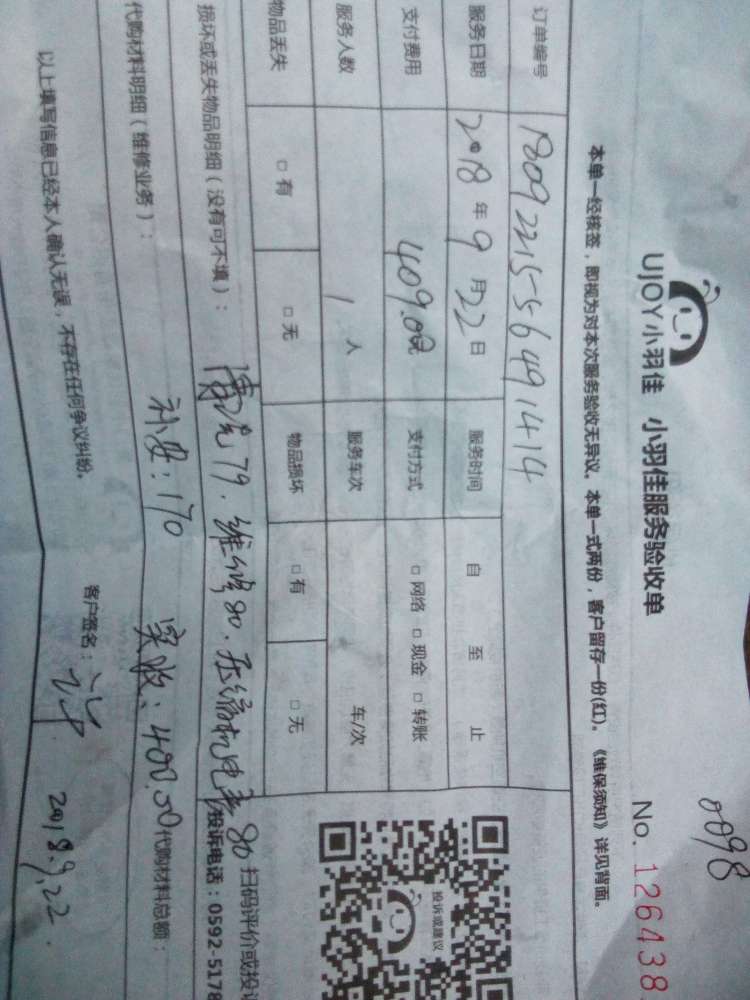 0098
UJOY小羽佳 小羽佳服务验收单 No. 126438
本单一经核签，即视为对本次服务验收无异议。本单一式两份，客户留存一份(红)。《维保须知》详见背面。
订单编号 180922155649 1414
服务日期 2018 年 9 月 22 日 服务时间 自 至 止
支付费用 409.00 支付方式 □ 网络 □ 现金 □ 转账
服务人数 1 人 服务车次 车/次
物品丢失 □ 有 □ 无 物品损坏 □ 有 □ 无
投诉或建议
扫码评价或投诉
投诉电话：0592-5178
损坏或丢失物品明细（没有可不填）： 79、维修80、压缩机电容80
代购材料明细（维修业务）： 170 实收：400.00 代购材料总额：
以上填写信息已经本人确认无误，不存在任何争议纠纷。
客户签名：许 2018.9.22.